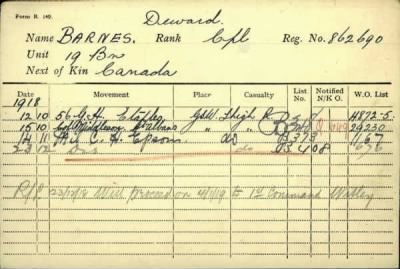 Form R. 149.
Deward.
Name BARNES. Rank Cpl Reg. No. 862690
Unit 19 Bn
Next of Kin Canada
Date Movement Place Casualty List No. Notified N/K O. W.O. List
1918
12 10 56 G.H. Etaples GSW Thigh R H872-5
15 10 " "
14 11 C. H. Epsom do 373 1167
23 12 Dis do B408 676
23/12/18 Will Proceed on 4/1/19 to 1st Command Witley